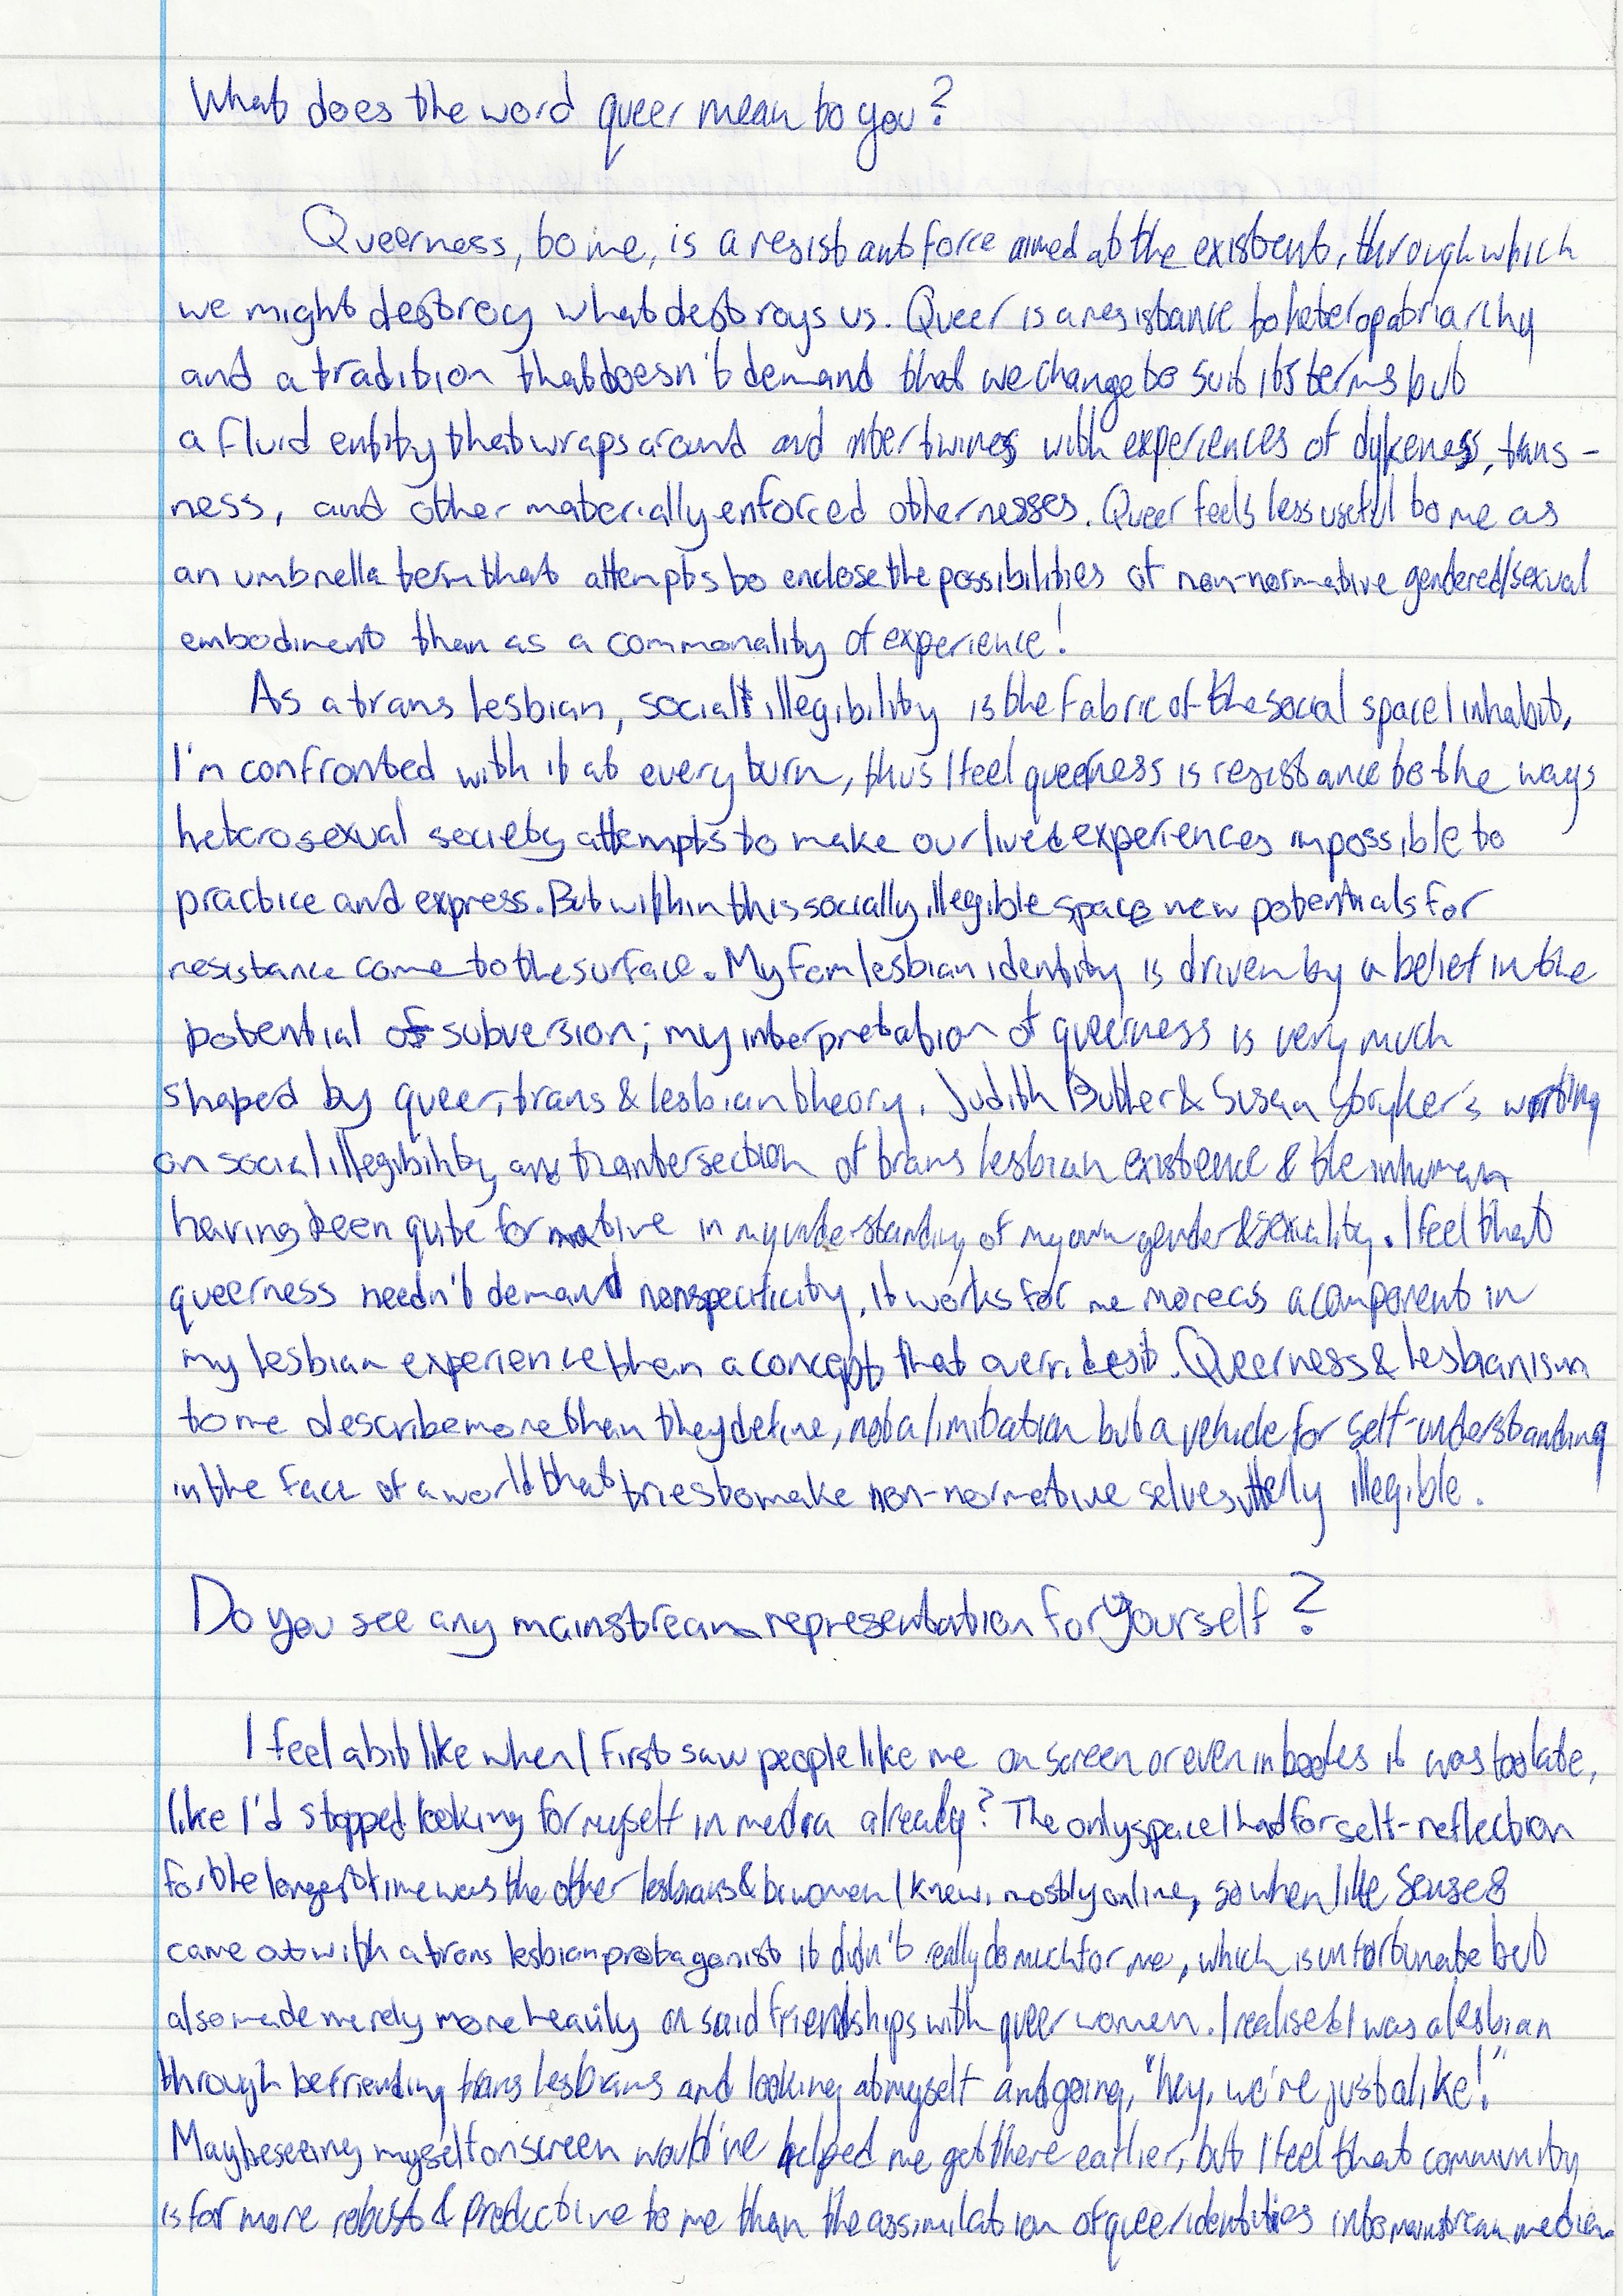 What does the word queer mean to you?
Queerness, to me, is a resistant force aimed at the existent, through which
we might destroy what destroys us. Queer is a resistance to heteropatriarchy
and a tradition that doesn't demand that we change to suit its terms but
a fluid entity that wraps around and intertwines with experiences of dykeness, trans-
ness, and other materially enforced othernesses. Queer feels less useful to me as
an umbrella term that attempts to enclose the possibilities of non-normative gendered/sexual
embodiment than as a commonality of experience!
As a trans lesbian, social illegibility is the fabric of the social space I inhabit,
I'm confronted with it at every turn, thus I feel queerness is resistance to the ways
heterosexual society attempts to make our lived experiences impossible to
practice and express. But within this socially illegible space new potentials for
resistance come to the surface. My fem lesbian identity is driven by a belief in the
potential of subversion; my interpretation of queerness is very much
shaped by queer, trans & lesbian theory. Judith Butler & Susan Stryker's writing
on social illegibility and the intersection of trans lesbian existence & the inhuman
having been quite formative in my understanding of my own gender & sexuality. I feel that
queerness needn't demand nonspecificity, it works for me more as a component in
my lesbian experience than a concept that overrides it. Queerness & lesbianism
to me describe more than they define, not a limitation but a vehicle for self-understanding
in the face of a world that tries to make non-normative selves utterly illegible.
Do you see any mainstream representation for yourself?
I feel a bit like when I first saw people like me on screen or even in books it was too late,
like I'd stopped looking for myself in media already? The only space I had for self-reflection
for the longest time was the other lesbians & bi women I knew, mostly online, so when like Sense8
came out with a trans lesbian protagonist it didn't really do much for me, which is unfortunate but
also made me rely more heavily on said friendships with queer women. I realised I was a lesbian
through befriending trans lesbians and looking at myself and going, "hey, we're just alike!"
Maybe seeing myself on screen would've helped me get there earlier, but I feel that community
is far more robust & productive to me than the assimilation of queer identities into mainstream media.